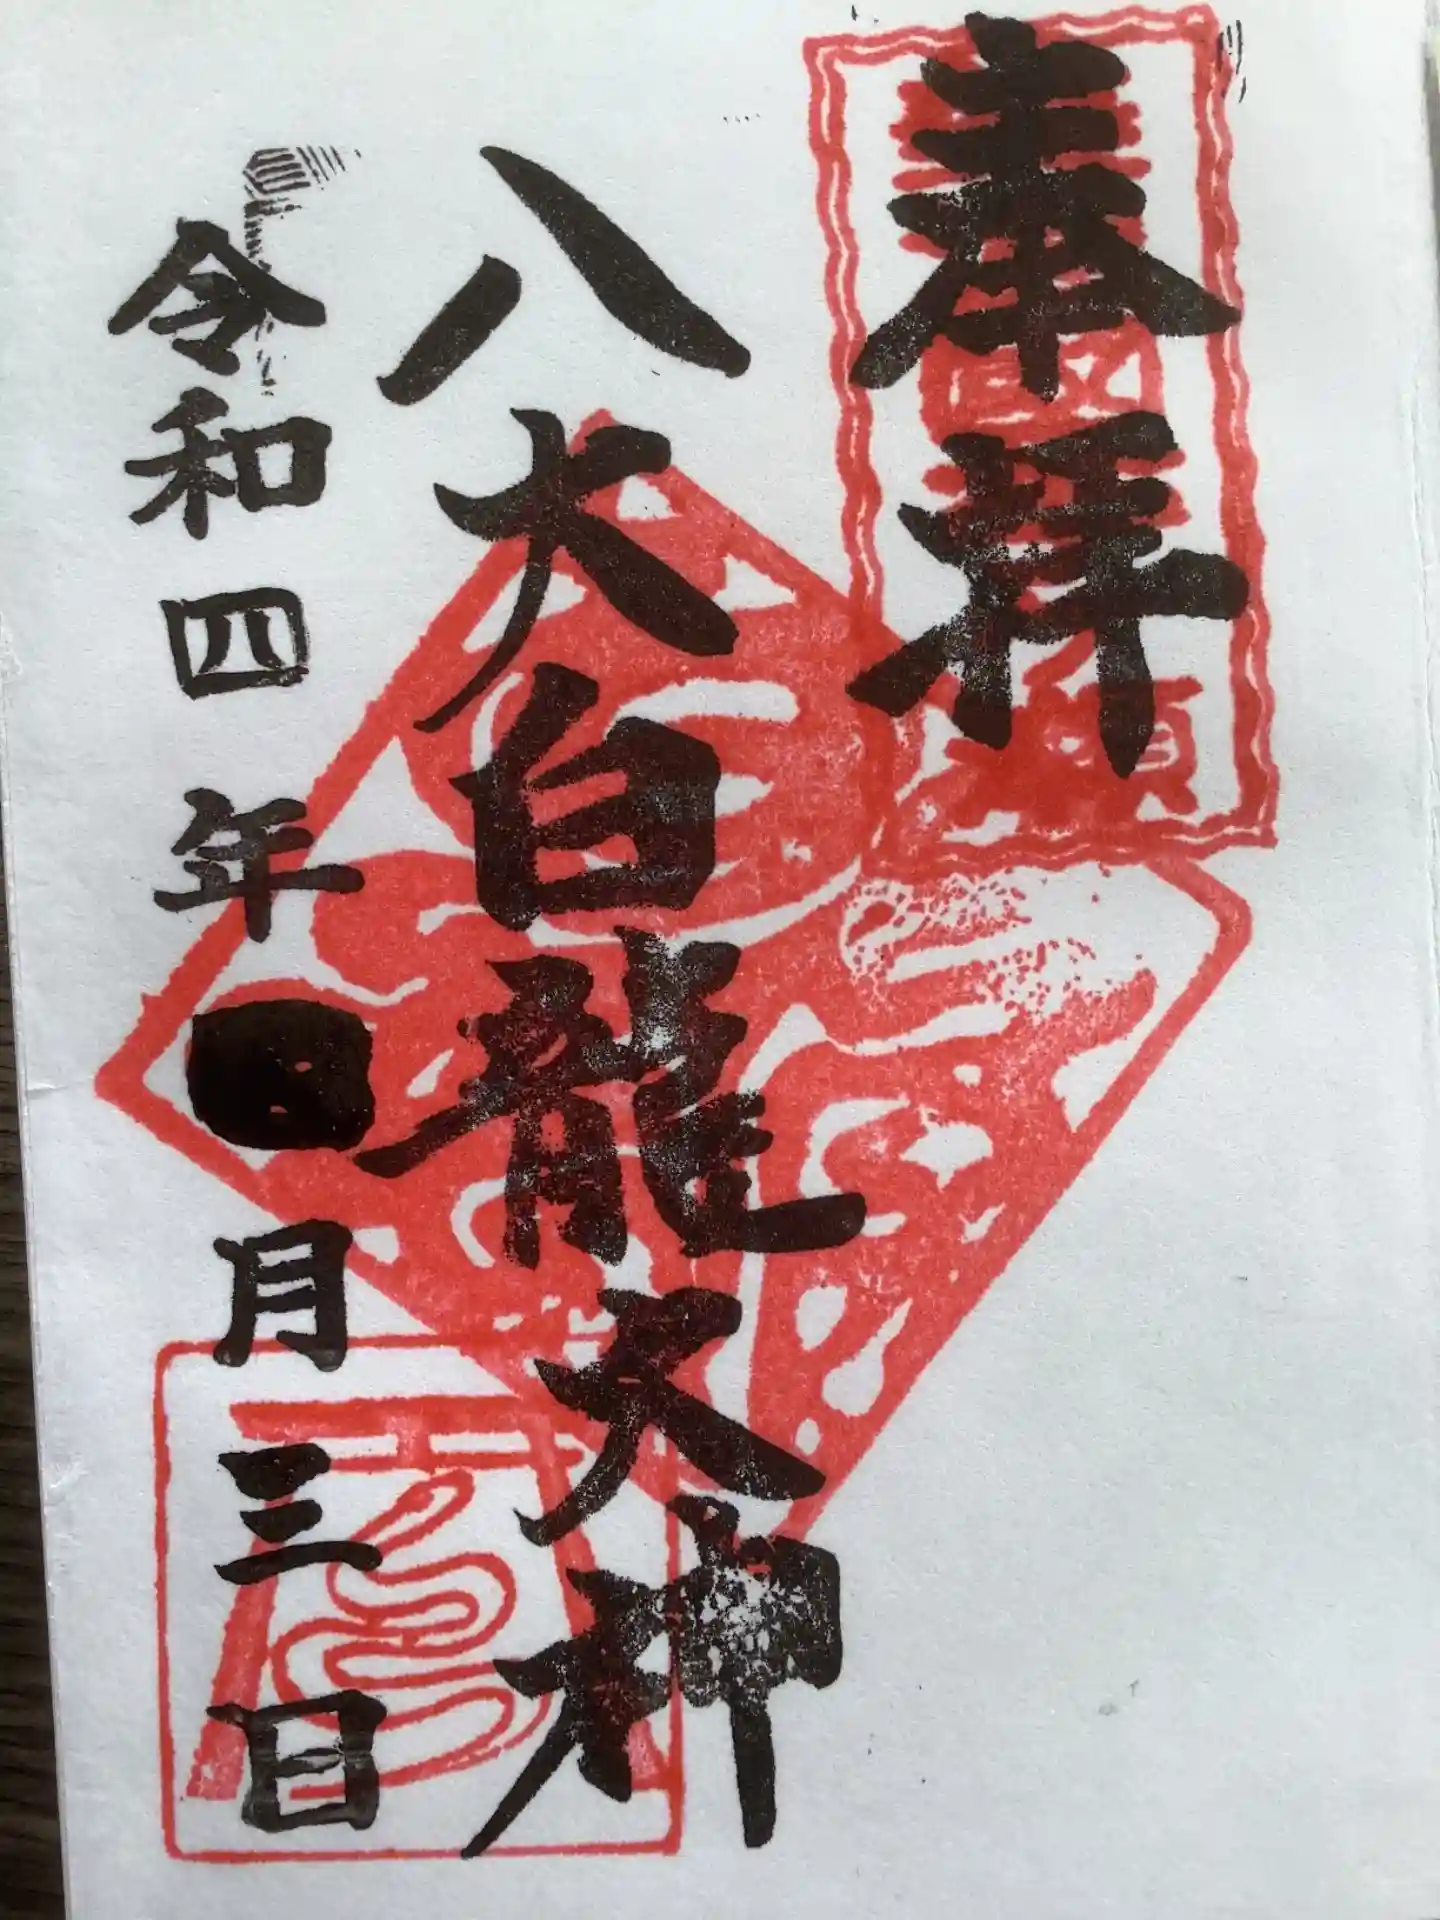 奉拝
八大白龍天神
令和四年 月三日